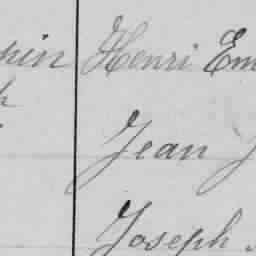 Henri Em
Jean J
Joseph